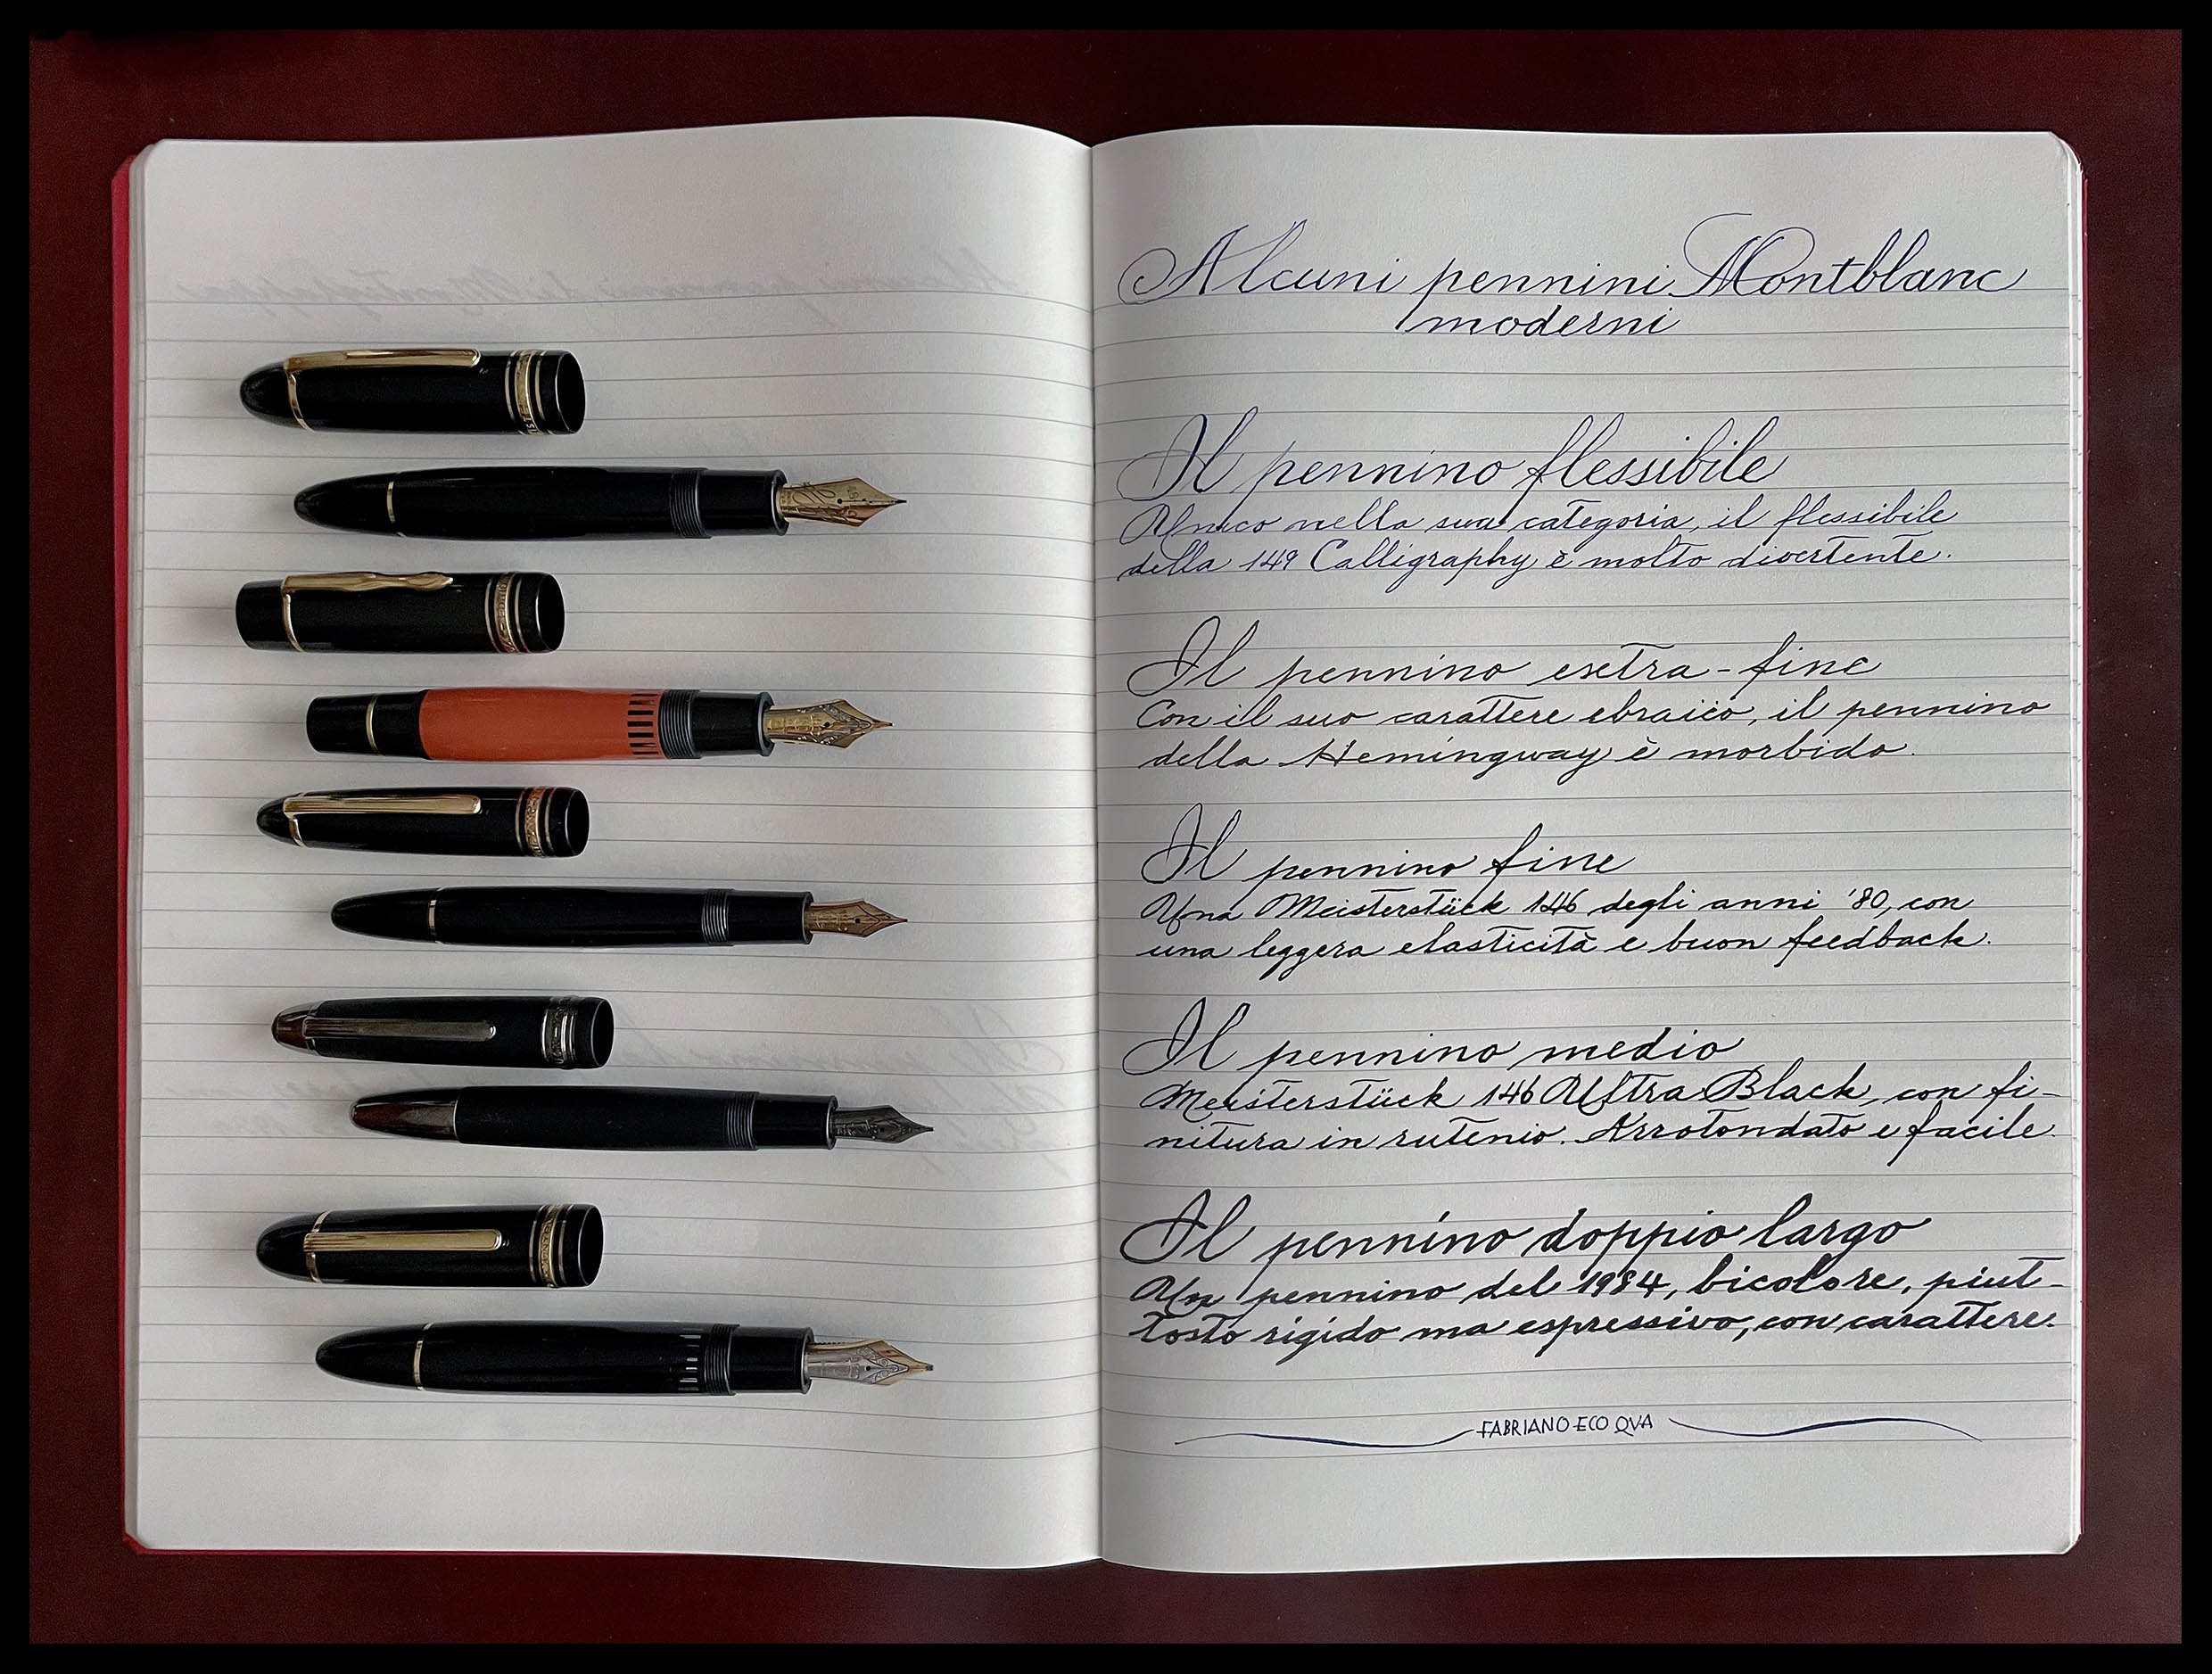 Alcuni pennini Montblanc
moderni
Il pennino flessibile
Unico nella sua categoria, il flessibile
della 149 Calligraphy è molto divertente.
Il pennino extra-fine
Con il suo carattere ebraico, il pennino
della Hemingway è morbido.
Il pennino fine
Una Meisterstück 146 degli anni '80, con
una leggera elasticità e buon feedback.
Il pennino medio
Meisterstück 146 Ultra Black, con fi-
nitura in rutenio. Arrotondato e facile.
Il pennino doppio largo
Un pennino del 1984, bicolore, piut-
tosto rigido ma espressivo, con carattere.
FABRIANO ECO QVA